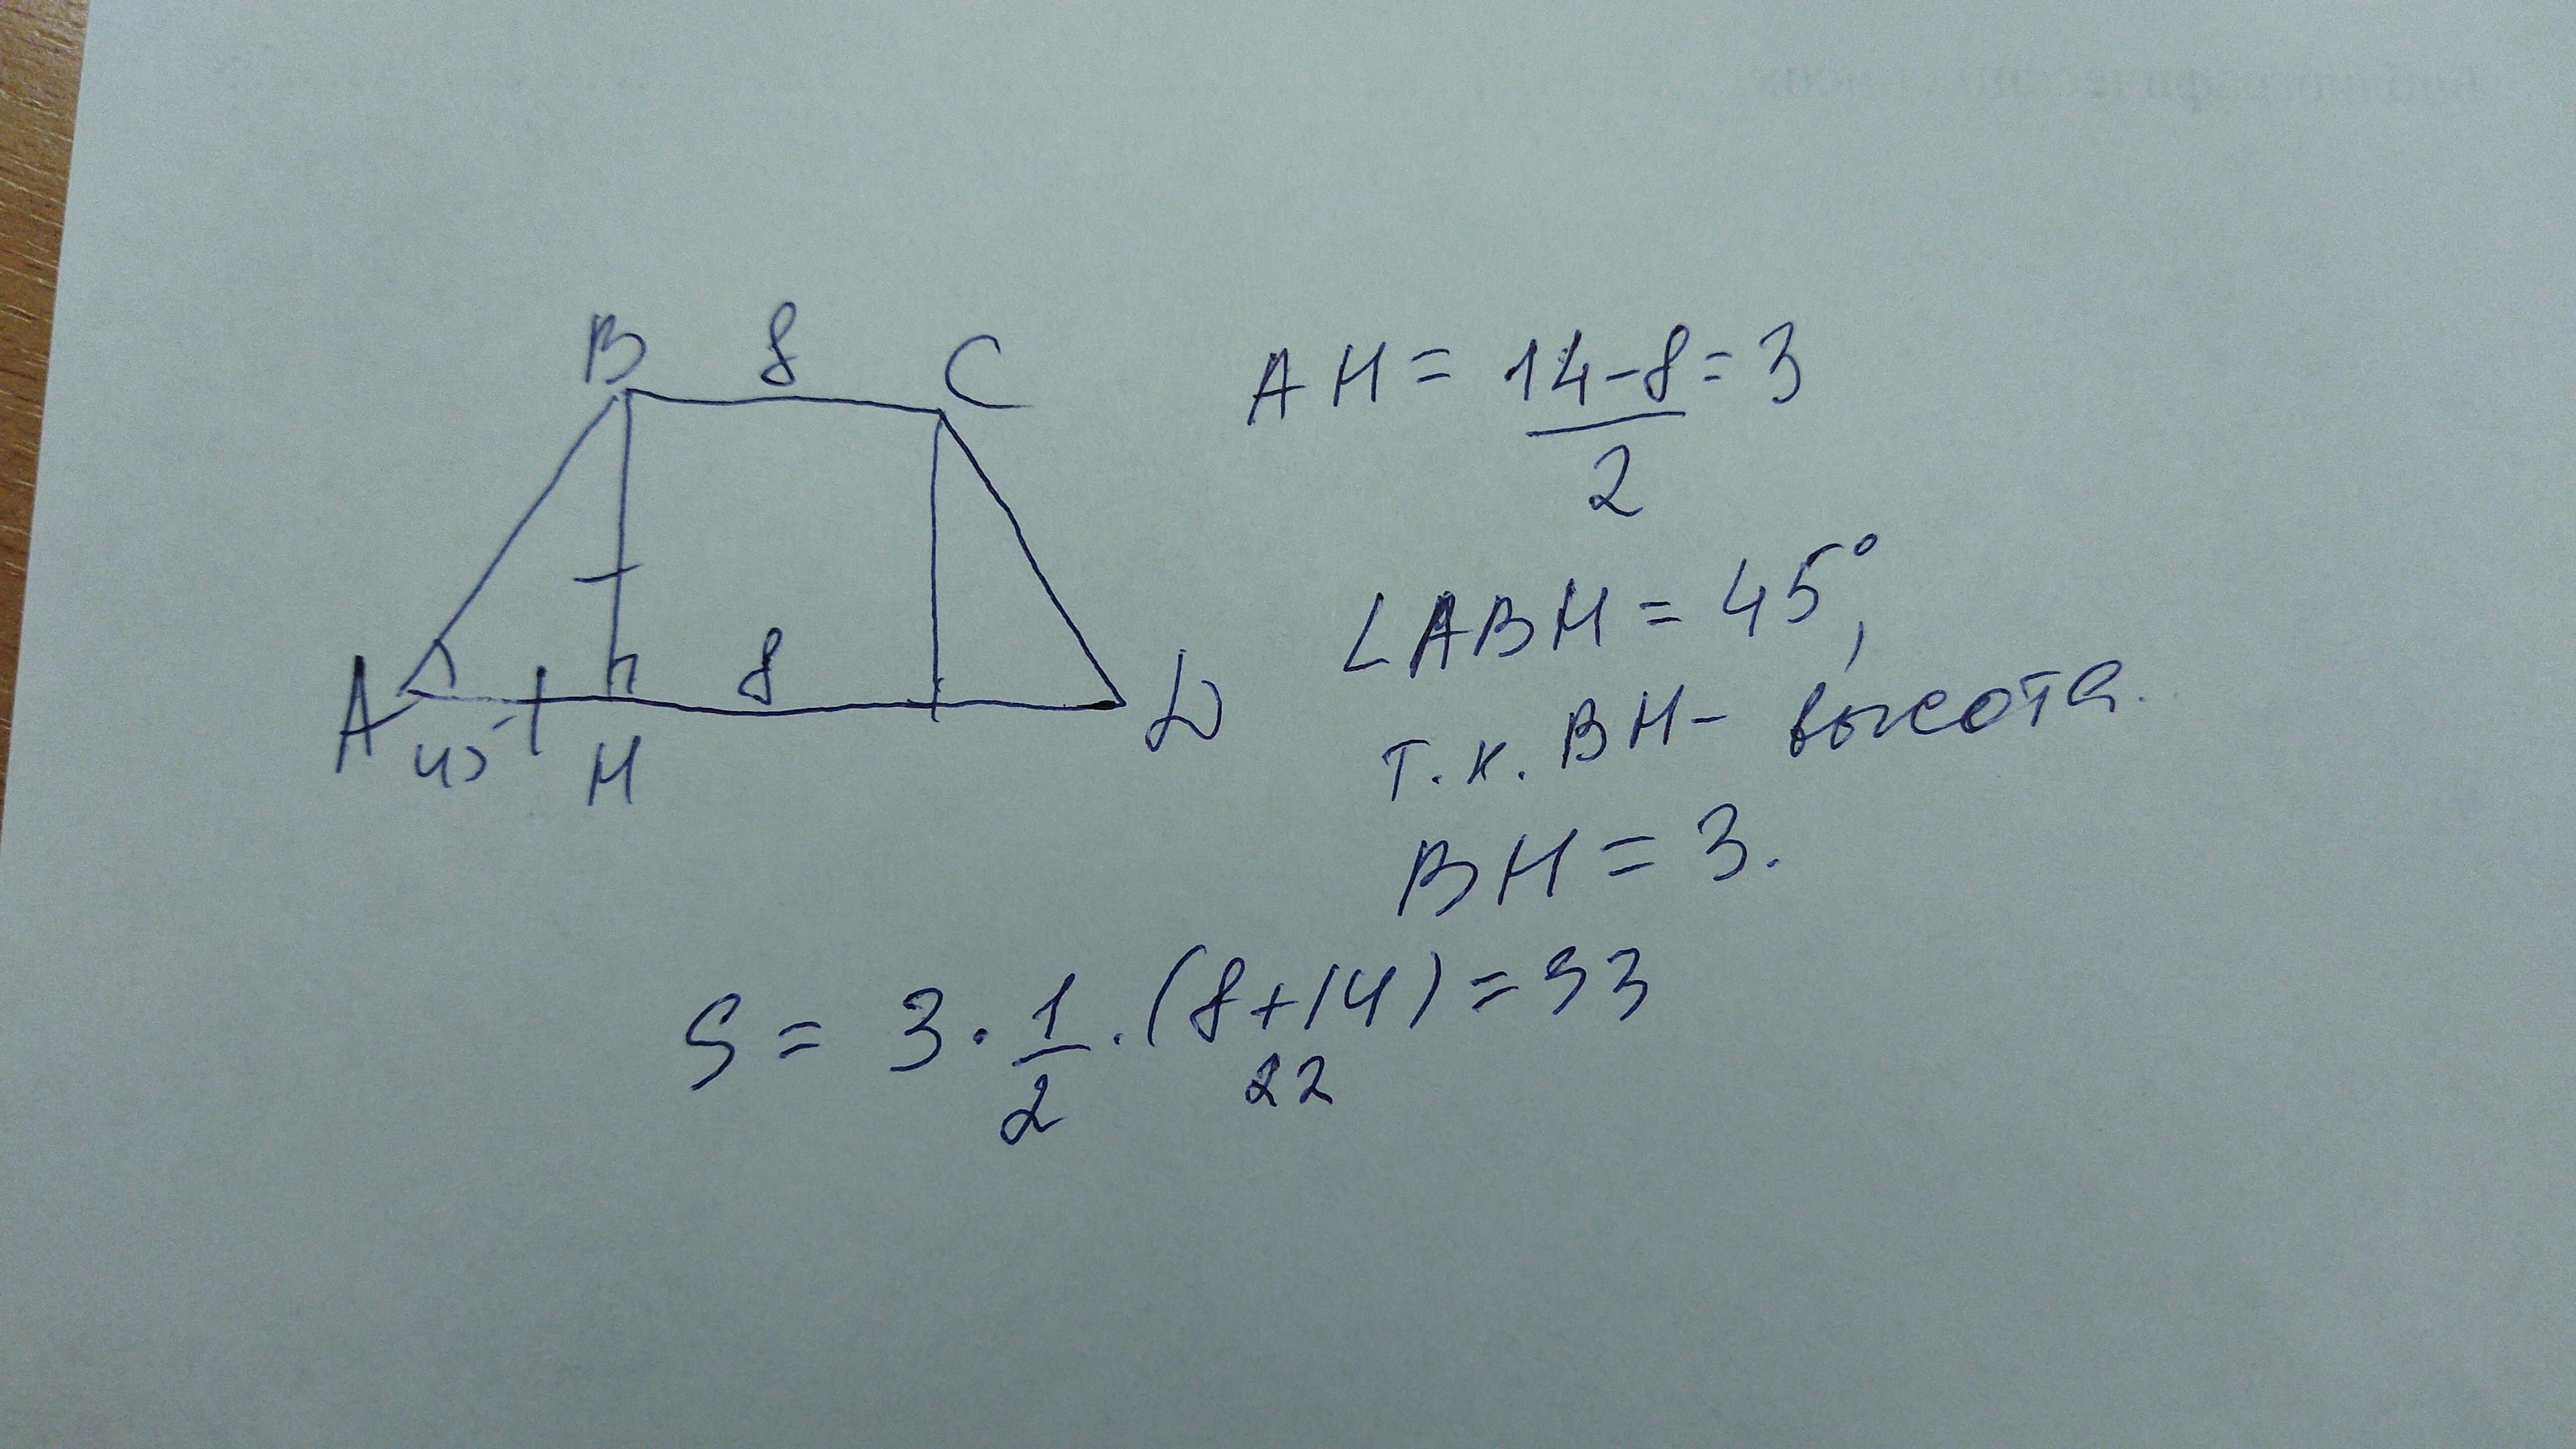 B 8 C
A 45 H 8 D
AH = (14-8)/2 = 3
∠ABH = 45°,
т.к. BH - высота.
BH = 3.
S = 3 · 1/2 · (8+14) = 33
22